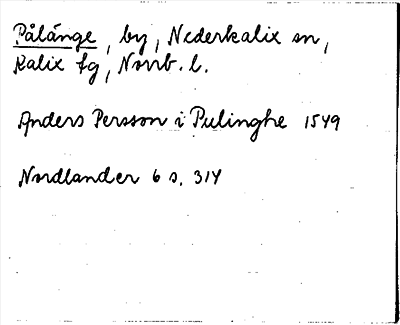 Pålänge, by, Nederkalix sn,
Kalix fg, Norrb. l.
Anders Persson i Pulinghe 1549
Nordlander 6 s. 314